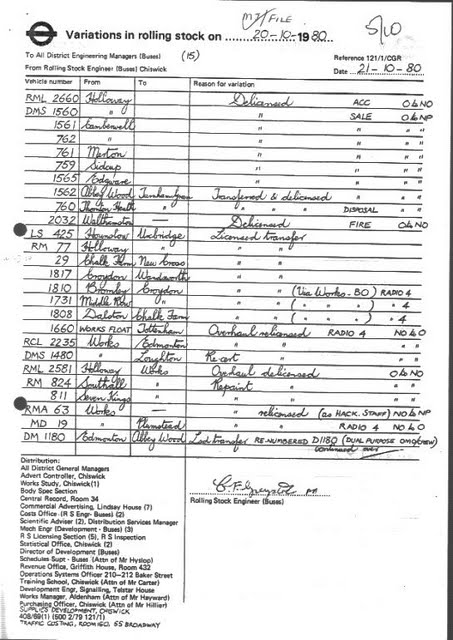 MY FILE
5/10
Variations in rolling stock on 20-10-1980
To All District Engineering Managers (Buses) (15)
Reference 121/1/CGR
From Rolling Stock Engineer (Buses) Chiswick
Date 21-10-80
Vehicle number From To Reason for variation
RML 2660 Holloway Delicensed ACC O L NO
DMS 1560 " " SALE O L NP
1561 Camberwell " " "
762 " " " "
761 Merton " " "
759 Sidcup " " "
1565 Edgware " " "
1562 Abbey Wood Transferred & delicensed " "
760 Thornton Heath " " " DISPOSAL " "
2032 Walthamstow — Delicensed FIRE O L NO
LS 425 Hounslow Uxbridge Licensed transfer
RM 77 Holloway " "
29 Chalk Farm New Cross "
1817 Croydon Wandsworth "
1810 Bromley Croydon " (Via Works - BO) RADIO 4
1731 Middle Row " " ( " " " ) " 4
1808 Dalston Chalk Farm " ( " " " ) " 4
1660 WORKS FLOAT Tottenham Overhaul relicensed RADIO 4 NO L O
RCL 2235 Works Edmonton " " "
DMS 1480 " Loughton Re-cert " "
RML 2581 Holloway Works Overhaul delicensed O L NO
RM 824 Southall " Repaint " "
811 Seven Kings " " " "
RMA 63 Works — " relicensed (as HACK. STAFF) NO L NP
MD 19 " Plumstead " " RADIO 4 NO L O
DM 1180 Edmonton Abbey Wood Lsd transfer RE-NUMBERED D1180 (DUAL PURPOSE OMO/CREW)
continued over
Distribution:
All District General Managers
Advert Controller, Chiswick
Works Study, Chiswick(1)
Body Spec Section
Central Record, Room 34
Commercial Advertising, Lindsay House (7)
Costs Office (R S Engr- Buses) (2)
Scientific Adviser (2), Distribution Services Manager
Mech Engr (Development - Buses) (3)
R S Licensing Section (5), R S Inspection
Statistical Office, Chiswick (2)
Director of Development (Buses)
Schedules Supt - Buses (Attn of Mr Hyslop)
Revenue Office, Griffith House, Room 432
Operations Systems Officer 210-212 Baker Street
Training School, Chiswick (Attn of Mr Carter)
Development Engr, Signalling, Telstar House
Works Manager, Aldenham (Attn of Mr Hayward)
Purchasing Officer, Chiswick (Attn of Mr Hillier)
SUPPLIES DEVELOPMENT, CHISWICK
408/69(1) (500 2/79 121/1)
TRAFFIC COSTING, ROOM 160, 55 BROADWAY
Rolling Stock Engineer (Buses)